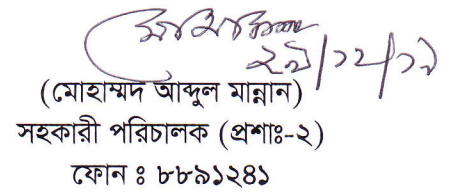 ২৯/১২/১৯
(মোহাম্মদ আব্দুল মান্নান)
সহকারী পরিচালক (প্রশাঃ-২)
ফোন ঃ ৮৮৯১২৪১